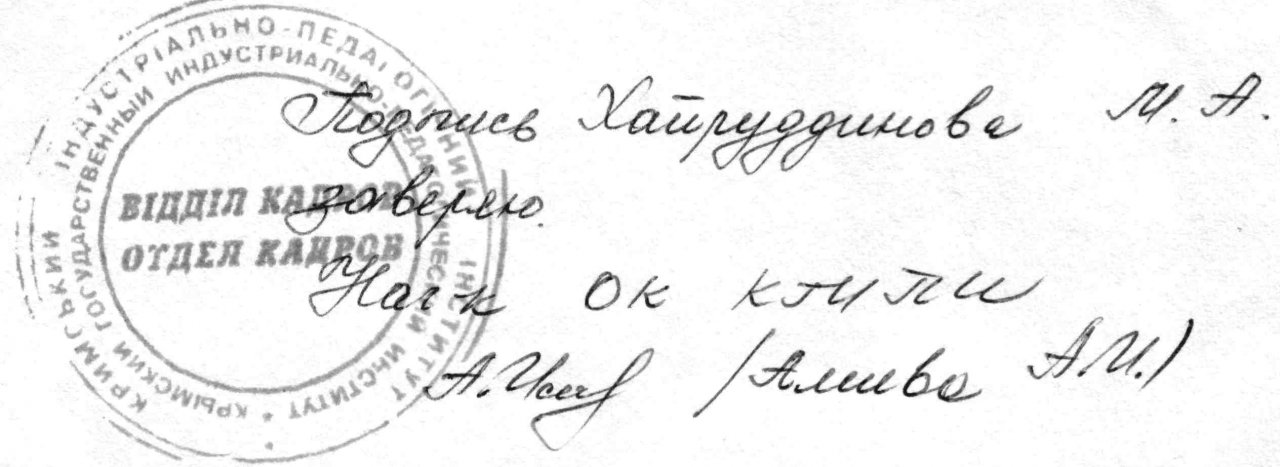 КРИМСЬКИЙ ІНДУСТРІАЛЬНО-ПЕДАГОГІЧНИЙ ІНСТИТУТ
КРЫМСКИЙ ГОСУДАРСТВЕННЫЙ ИНДУСТРИАЛЬНО-ПЕДАГОГИЧЕСКИЙ ИНСТИТУТ
ВІДДІЛ КАДРОВ
ОТДЕЛ КАДРОВ
Подпись Хайруддинова М. А.
заверяю.
Нач-к ОК КГИПИ
(Алиева А.И.)